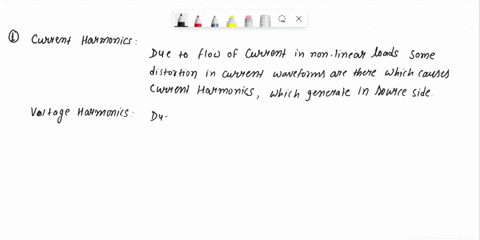 ① Current Harmonics :
Due to flow of Current in non-linear loads some
distortion in current waveforms are there which causes
Current Harmonics, which generate in source side.
Voltage Harmonics : Du